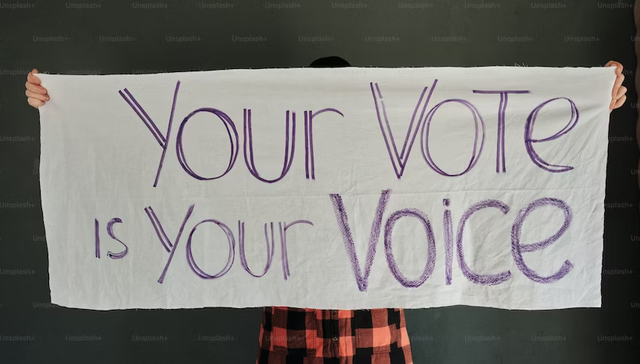 Your Vote
is Your Voice
Unsplash+